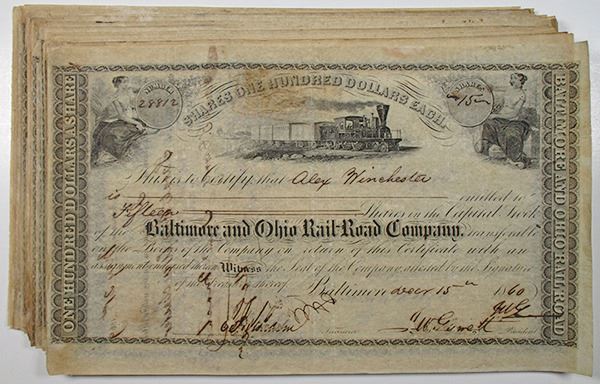 NUMBER
28812
SHARES ONE HUNDRED DOLLARS EACH.
SHARES
15
This is to Certify that Alex Winchester
is entitled to
Fifteen Shares in the Capital Stock
of the Baltimore and Ohio Rail-Road Company, transferable
on the Books of the Company on return of this Certificate with an
assignment endorsed thereon Witness the Seal of the Company attested by the Signature
of the President thereof.
Baltimore Decr 15th 1860
President
ONE HUNDRED DOLLARS A SHARE
BALTIMORE AND OHIO RAIL ROAD